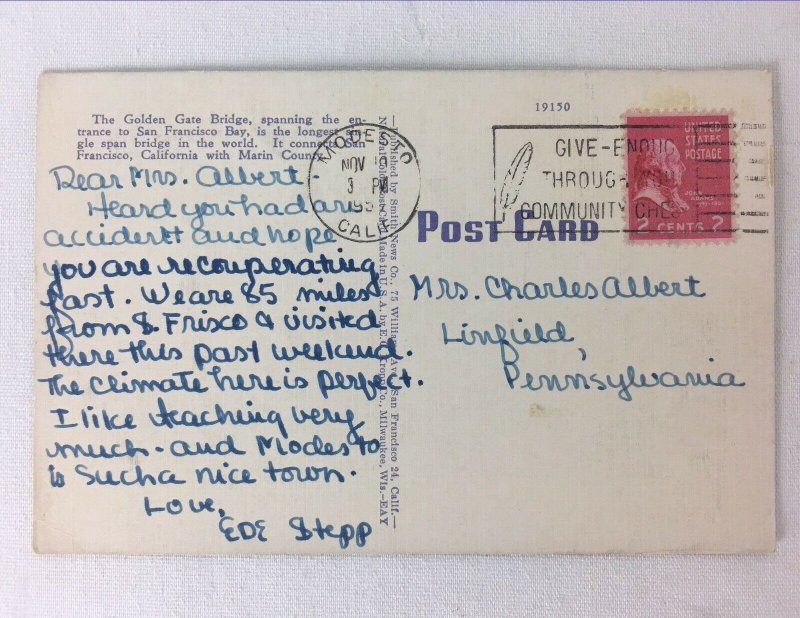 The Golden Gate Bridge, spanning the en-
trance to San Francisco Bay, is the longest sin-
gle span bridge in the world. It connects San
Francisco, California with Marin County.
Dear Mrs. Albert.
Heard you had an
accident and hope
you are recouperating
fast. We are 85 miles
from S. Frisco & visited
there this past weekend.
The climate here is perfect.
I like teaching very
much - and Modesto
is such a nice town.
Love,
EDE Stepp
—Published by Smith News Co., 75 William Ave., San Francisco 24, Calif.—
Made in U.S.A. by E. C. Kropp Co., Milwaukee, Wis.—EAY
MODESTO
NOV
3 PM
CALIF.
19150
GIVE-ENOUG
THROUGH YOU
COMMUNITY CHES
UNITED
STATES
POSTAGE
JOHN
ADAMS
2 CENTS 2
POST CARD
Mrs. Charles Albert
Linfield,
Pennsylvania